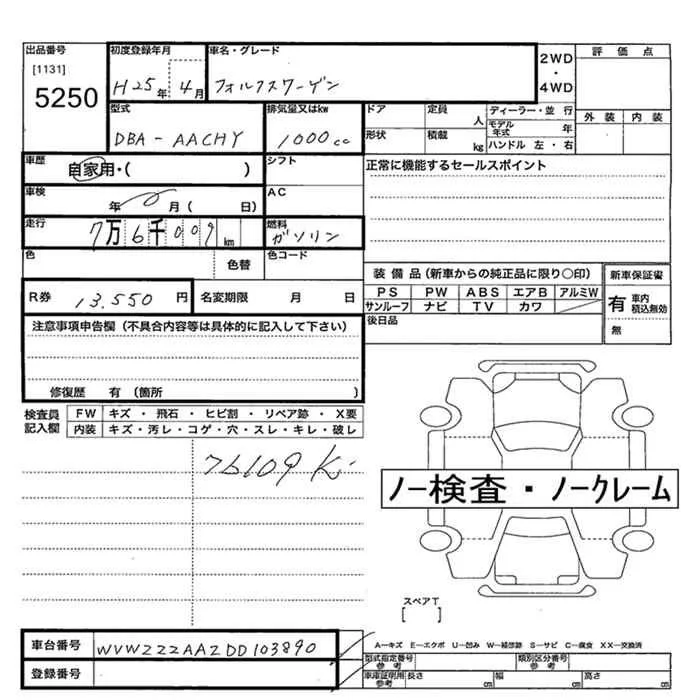 出品番号
[1131]
5250
初度登録年月
H25年 4月
車名・グレード
フォルクスワーゲン
2WD
・
4WD
評価点
外装 内装
型式
DBA-AACHY
排気量又はkw
1000cc
ドア
定員
人
形状
積載
kg
ディーラー・並行
モデル年式 年
ハンドル 左・右
車歴
自家用・( )
シフト
正常に機能するセールスポイント
車検
年 月( 日)
AC
走行
7万6千009km
燃料
ガソリン
色
色替
色コード
R券 13,550円
名変期限 月 日
装備品(新車からの純正品に限り○印)
PS PW ABS エアB アルミW
サンルーフ ナビ TV カワ
新車保証書
有 車内積込無効
無
後日品
注意事項申告欄(不具合内容等は具体的に記入して下さい)
修復歴 有(箇所 )
検査員記入欄
FW キズ・飛石・ヒビ割・リペア跡・X要
内装 キズ・汚レ・コゲ・穴・スレ・キレ・破レ
76109K
ノー検査・ノークレーム
スペアT
[ ]
車台番号 WVWZZZAAZDD103890
登録番号
A-キズ E-エクボ U-凹み W-補修跡 S-サビ C-腐食 XX-交換済
型式指定番号参考
類別区分番号参考
車庫証明用参考 長さ cm 幅 cm 高さ cm